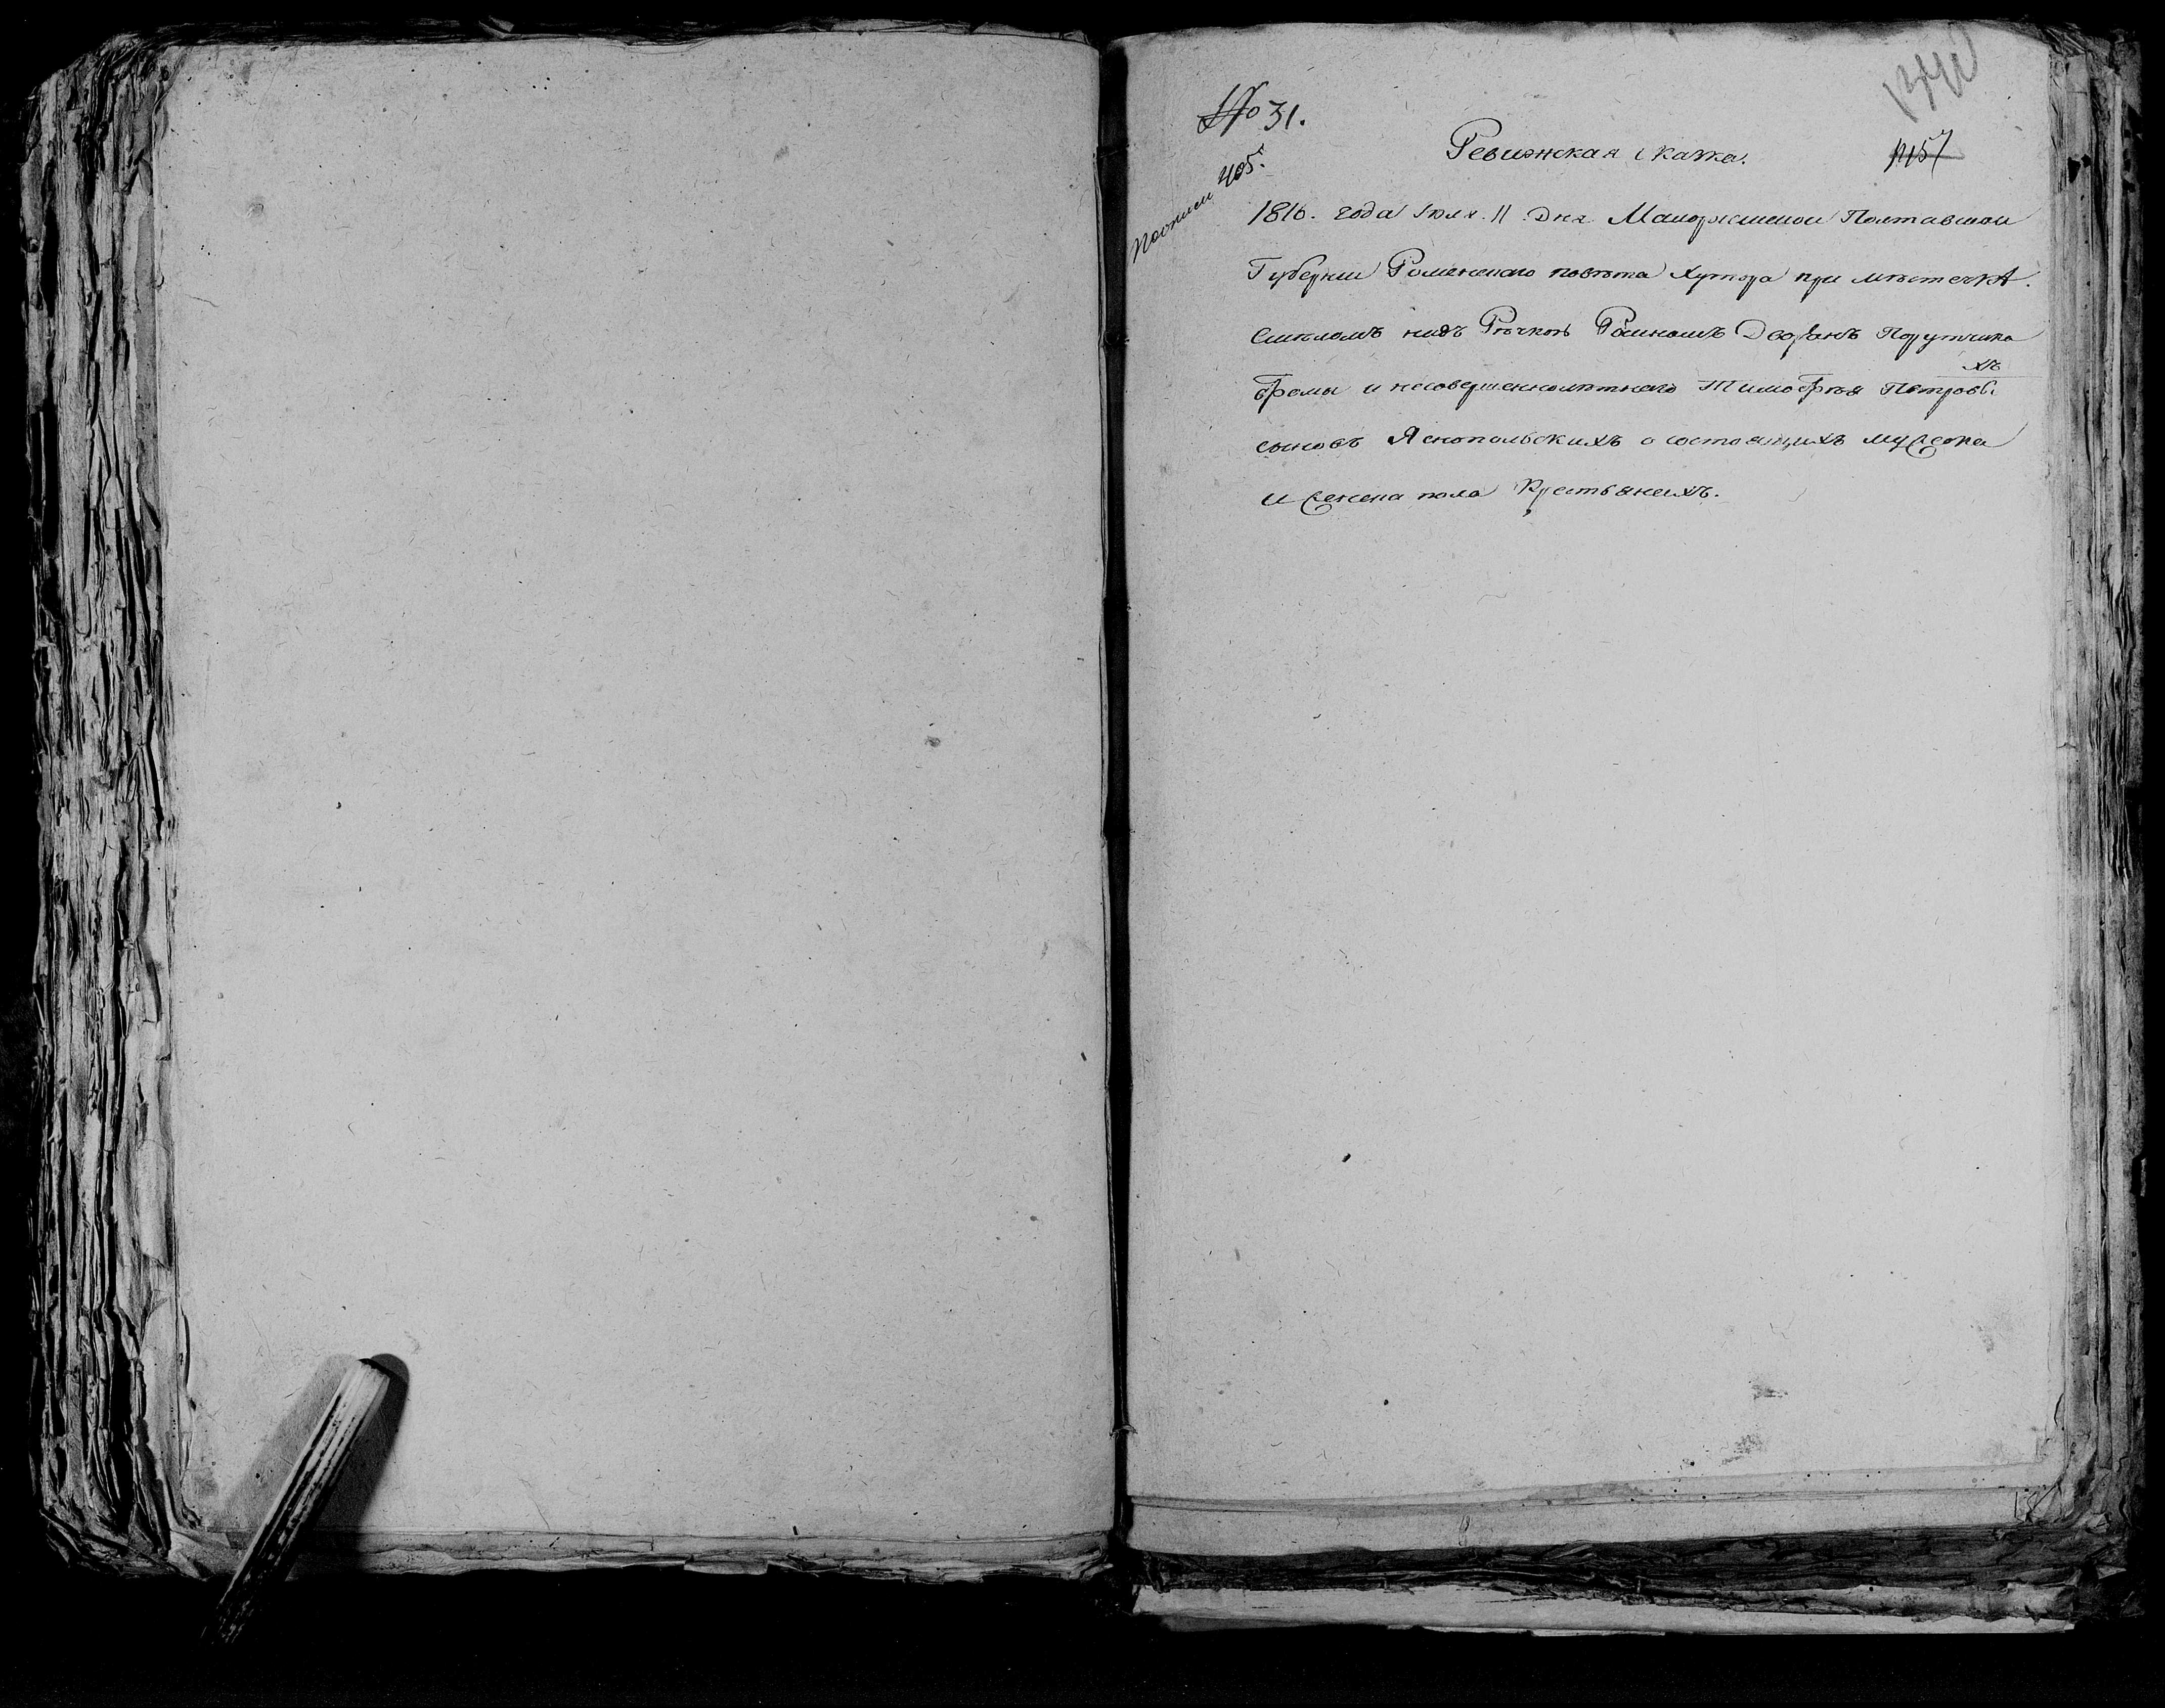 № 31.
1340
Ревизжская скажа.
1157
Пописи 405.
1816. года Іюля. 11. Дня Малоросійской Полтавской
Губерніи Роменского повѣта Хутора при мѣстечкѣ.
Смѣломъ надъ Рѣчкою Дворянъ Порутчика
хъ
Фомы и несовершеннолѣтнего Тимофѣя Петровы
сыновъ Яснопольскихъ о состоящихъ мужеска
и женска пола Крестьянехъ.